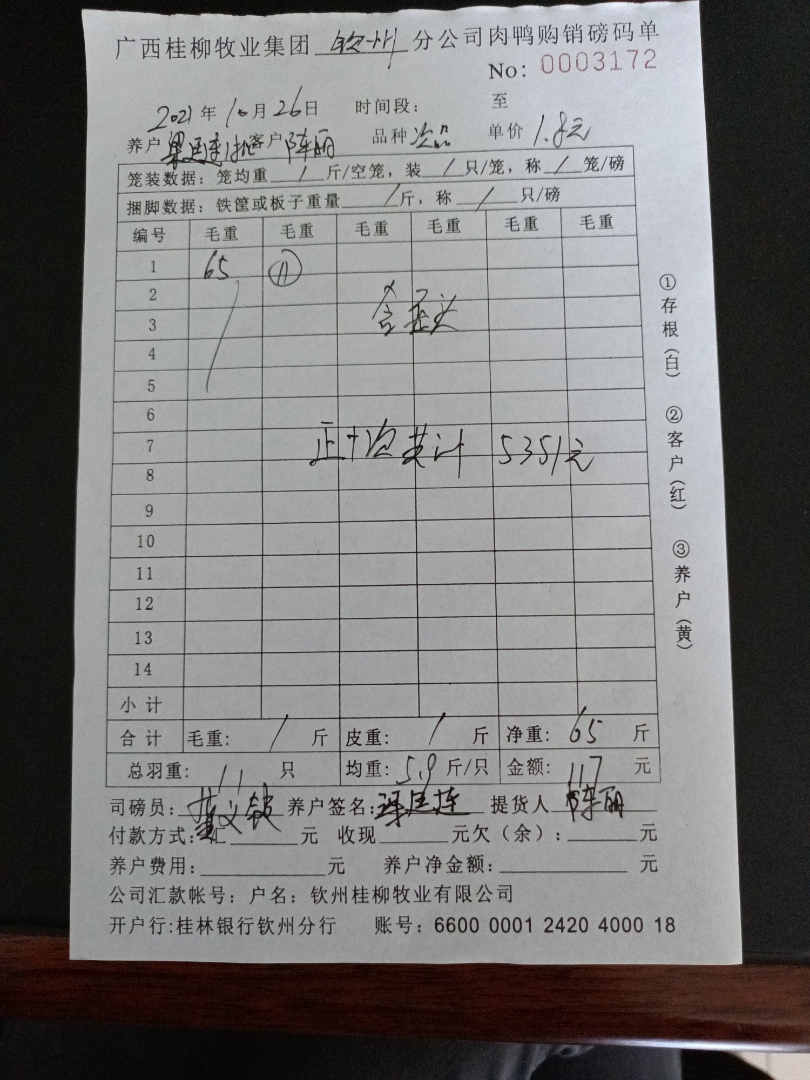 广西桂柳牧业集团 钦州 分公司肉鸭购销磅码单
No: 0003172
2021年10月26日 时间段： 至
养户 客户 陈丽 品种 次品 单价 1.8元
笼装数据：笼均重 / 斤/空笼，装 / 只/笼，称 / 笼/磅
捆脚数据：铁筐或板子重量 / 斤，称 / 只/磅
编号 毛重 毛重 毛重 毛重 毛重 毛重
1 65 11
2
3
4
5
6
7
正+次共计 5351元
8
9
10
11
12
13
14
小计
合计 毛重: / 斤 皮重: / 斤 净重: 65 斤
总羽重: 11 只 均重: 5.9 斤/只 金额: 117 元
司磅员: 养户签名: 提货人 陈丽
付款方式: 汇 元 收现 元欠（余）: 元
养户费用: 元 养户净金额: 元
公司汇款帐号：户名：钦州桂柳牧业有限公司
开户行:桂林银行钦州分行 账号：6600 0001 2420 4000 18
①存根（白） ②客户（红） ③养户（黄）